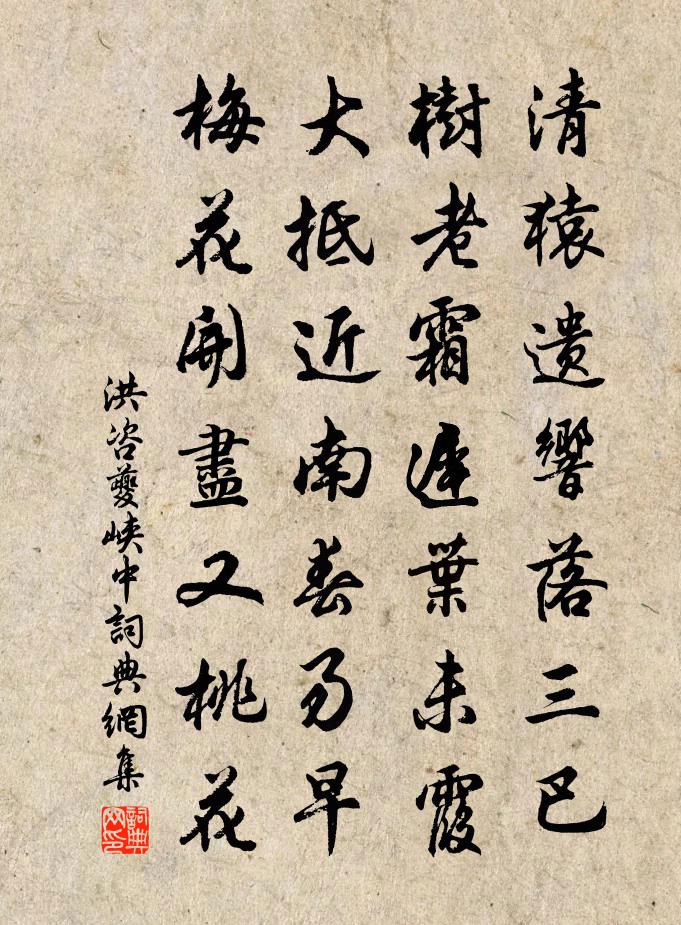 清猿遺響落三巴
樹老霜遲葉未霞
大抵近南春易早
梅花開盡又桃花
洪咨夔峽中詞典網集
詞典網印